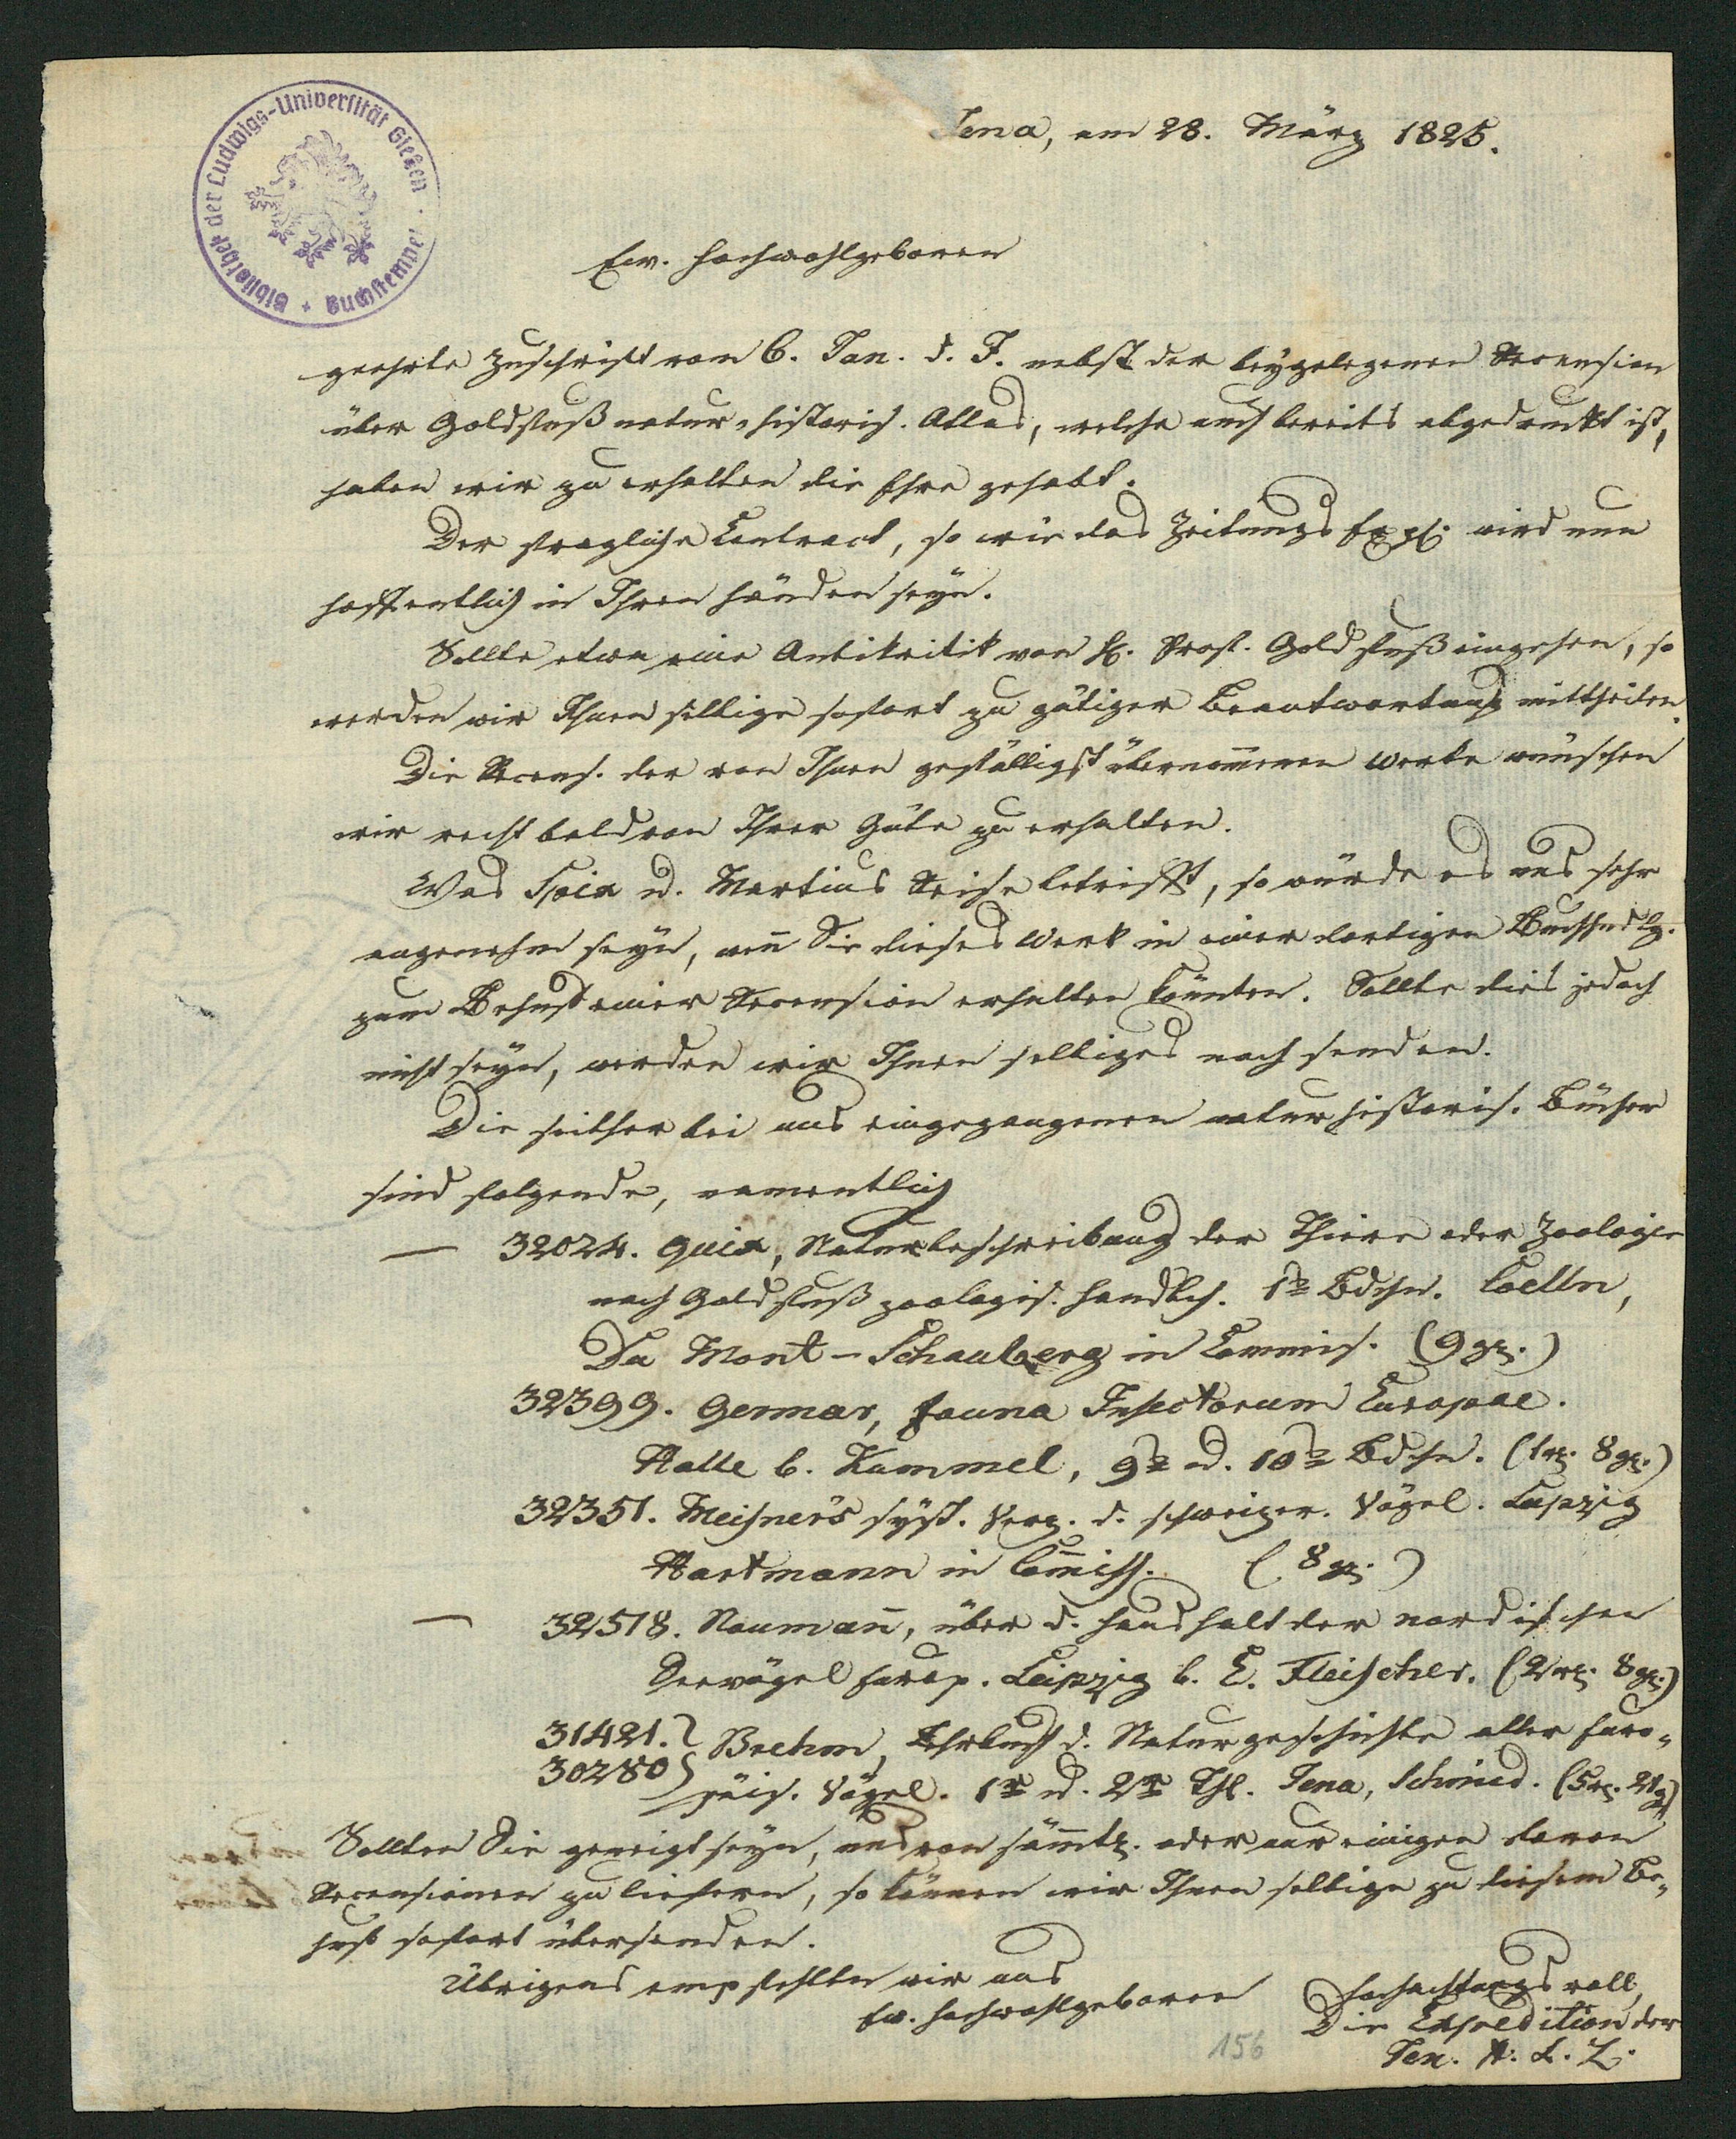 Bibliothek der Ludwigs-Universität Gießen · Buchstempel
Jena, am 28. März 1825.
Ew. Hochwohlgeboren
geehrte Zuschrift vom 6. Jan. d. J. nebst der beygelegenen Recension
über Goldfuß natur-historis. Atlas, welche auch bereits abgedruckt ist,
haben wir zu erhalten die Ehre gehabt.
Der fragliche Contract, so wie das Zeitungs Expl. wird nun
hoffentlich in Ihren Händen seyn.
Sollte etwa eine Antikritik von H. Prof. Goldfuß eingehen, so
werden wir Ihnen selbige sofort zu gütiger Beantwortung mittheilen.
Die Recens. der von Ihnen gefälligst übernom̄enen Werke wünschen
wir recht bald von Ihrer Güte zu erhalten.
Was Spix u. Martius Reise betrifft, so würde es uns sehr
angenehm seyn, wen̄ Sie dieses Werk in einer dortigen Buchhndlg.
zum Behuf einer Recension erhalten könnten. Sollte dies jedoch
nicht seyn, werden wir Ihnen selbiges noch senden.
Die seither bei uns eingegangenen naturhistoris. Bücher
sind folgende, namentlich
— 32024. Quix, Naturbeschreibung der Thiere oder Zoologie
nach Goldfuß zoologis. Handbch. 1s Bdchn. Coelln,
Du Mont-Schauberg in Commis. (9 gr.)
32399. Germar, Fauna Insectorum Europae.
Halle b. Kümmel, 9s u. 10s Bdchn. (1 rt. 8 gr.)
32351. Meisner's syst. Verz. d. schweizer. Vögel. Leipzig
Hartmann in Com̄iss. (8 gr.)
— 32518. Nauman̄, über d. Haushalt der nordischen
Seevögel Europ. Leipzig b. E. Fleischer. (2 rt. 8 gr.)
31421. } Brehm, Lehrbuch d. Naturgeschichte aller euro-
30280 } päis. Vögel. 1r u. 2r Thl. Jena, Schmid. (5 rt. 21 gr)
Sollten Sie geneigt seyn, uns von säm̄tl. oder nur einigen davon
Recensionen zu liefern, so können wir Ihnen selbige zu diesem Be-
huf sofort übersenden.
Übrigens empfehlen wir uns
Ew. Hochwohlgeboren
hochachtungsvoll,
Die Expedition der
Jen. A. L. Z.
156